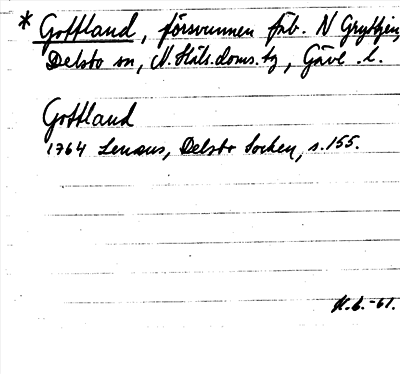 * Gottland, försvunnen fäb. N Gryttjen,
Delsbo sn, N. Häls. doms. tg, Gävl. l.
Gottland
1764 Lenæus, Delsbo Socken, s. 155.
H.L. -61.